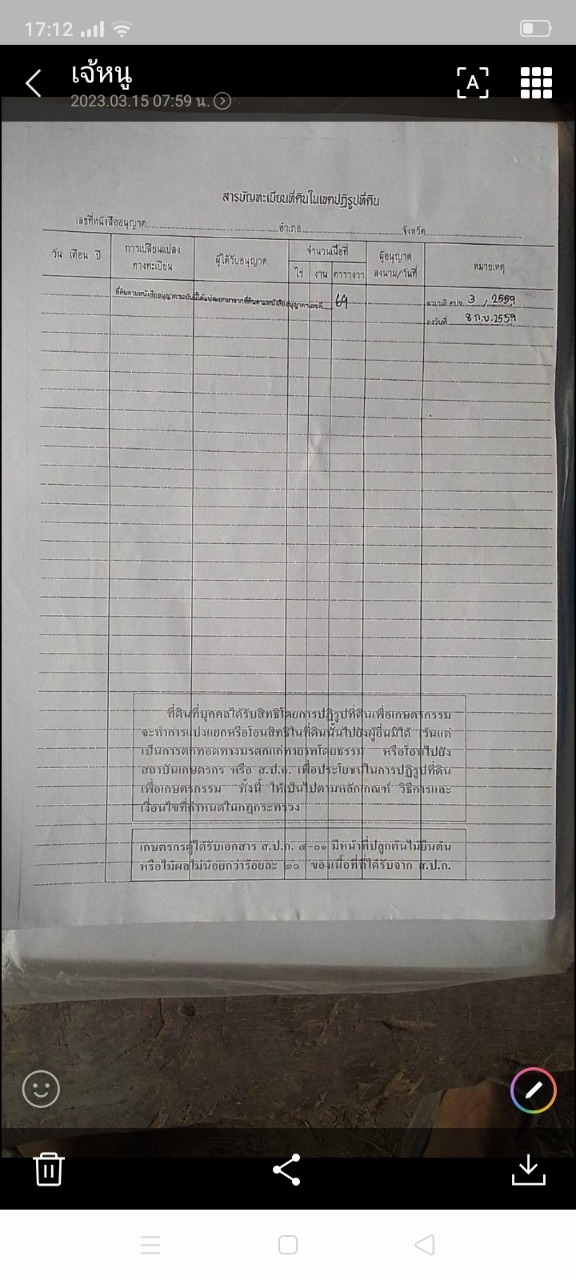 17:12
เจ้หนู
2023.03.15 07:59 น.
A
สารบัญทะเบียนที่ดินในเขตปฏิรูปที่ดิน
เลขที่หนังสืออนุญาต............อำเภอ............จังหวัด............
วัน เดือน ปี
การเปลี่ยนแปลง
ทางทะเบียน
ผู้ได้รับอนุญาต
จำนวนเนื้อที่
ไร่ งาน ตารางวา
ผู้อนุญาต
ลงนาม/วันที่
หมายเหตุ
ที่ดินตามหนังสืออนุญาตฉบับนี้ได้แบ่งแยกมาจากที่ดินตามหนังสืออนุญาตเลขที่ 69
ตามมติ คปจ. 3 / 2559
ลงวันที่ 8 ก.พ. 2559
ที่ดินที่บุคคลได้รับสิทธิโดยการปฏิรูปที่ดินเพื่อเกษตรกรรม
จะทำการแบ่งแยกหรือโอนสิทธิในที่ดินนั้นไปยังผู้อื่นมิได้ เว้นแต่
เป็นการตกทอดทางมรดกแก่ทายาทโดยธรรม หรือโอนไปยัง
สถาบันเกษตรกร หรือ ส.ป.ก. เพื่อประโยชน์ในการปฏิรูปที่ดิน
เพื่อเกษตรกรรม ทั้งนี้ ให้เป็นไปตามหลักเกณฑ์ วิธีการและ
เงื่อนไขที่กำหนดในกฎกระทรวง
เกษตรกรผู้ได้รับเอกสาร ส.ป.ก. ๔-๐๑ มีหน้าที่ปลูกต้นไม้ยืนต้น
หรือไม้ผลไม่น้อยกว่าร้อยละ ๒๐ ของเนื้อที่ที่ได้รับจาก ส.ป.ก.